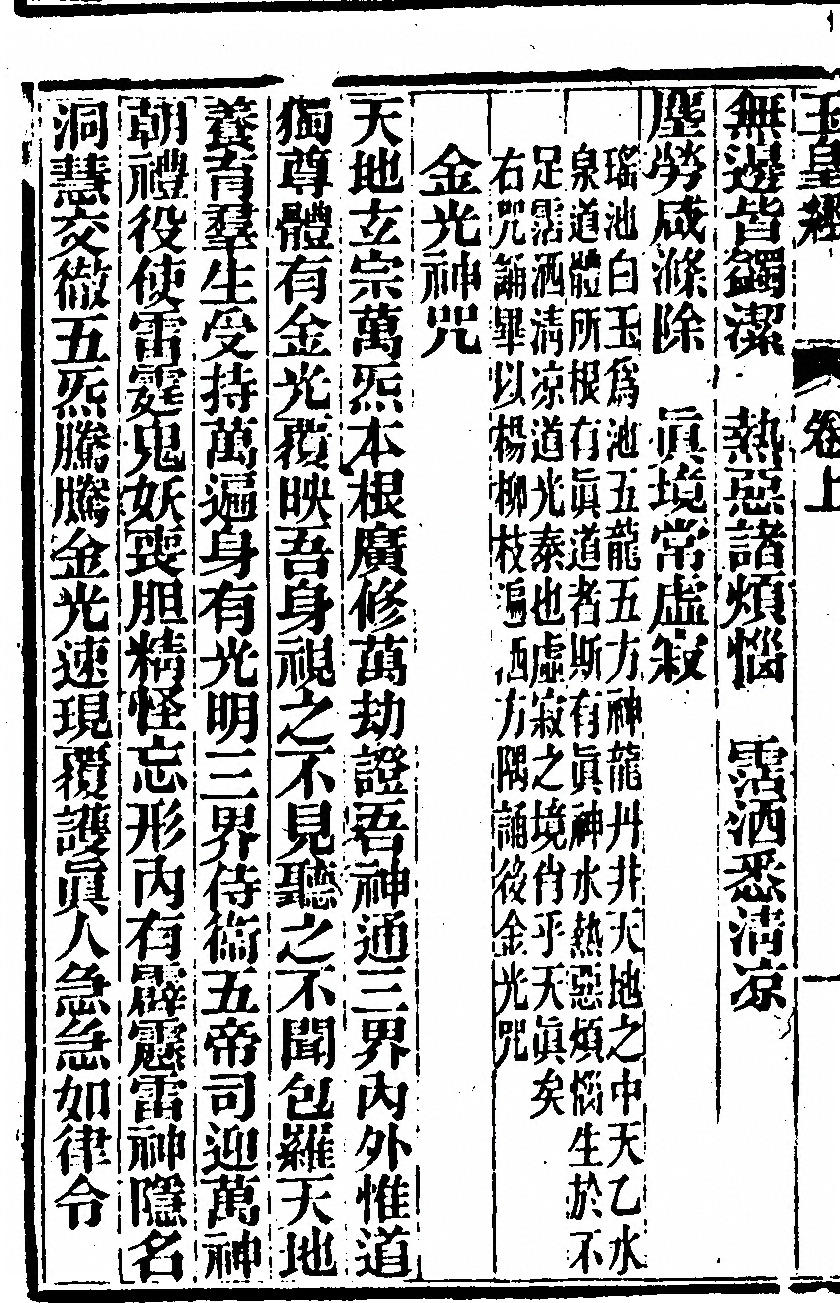 玉皇經 卷上
無邊皆蠲潔 熱惡諸煩惱 霑洒悉清凉
塵勞咸滌除 眞境常虛寂
瑤池白玉爲池五龍五方神龍丹井天地之中天乙水
泉道體所根有眞道者斯有眞神水熱惡煩惱生於不
足霑洒清凉道光泰也虛寂之境肖乎天眞矣
右咒誦畢以楊柳枝遍洒方隅誦後金光咒
金光神咒
天地玄宗萬炁本根廣修萬劫證吾神通三界內外惟道
獨尊體有金光覆映吾身視之不見聽之不聞包羅天地
養育羣生受持萬遍身有光明三界侍衞五帝司迎萬神
朝禮役使雷霆鬼妖喪胆精怪忘形內有霹靂雷神隱名
洞慧交徹五炁騰騰金光速現覆護眞人急急如律令